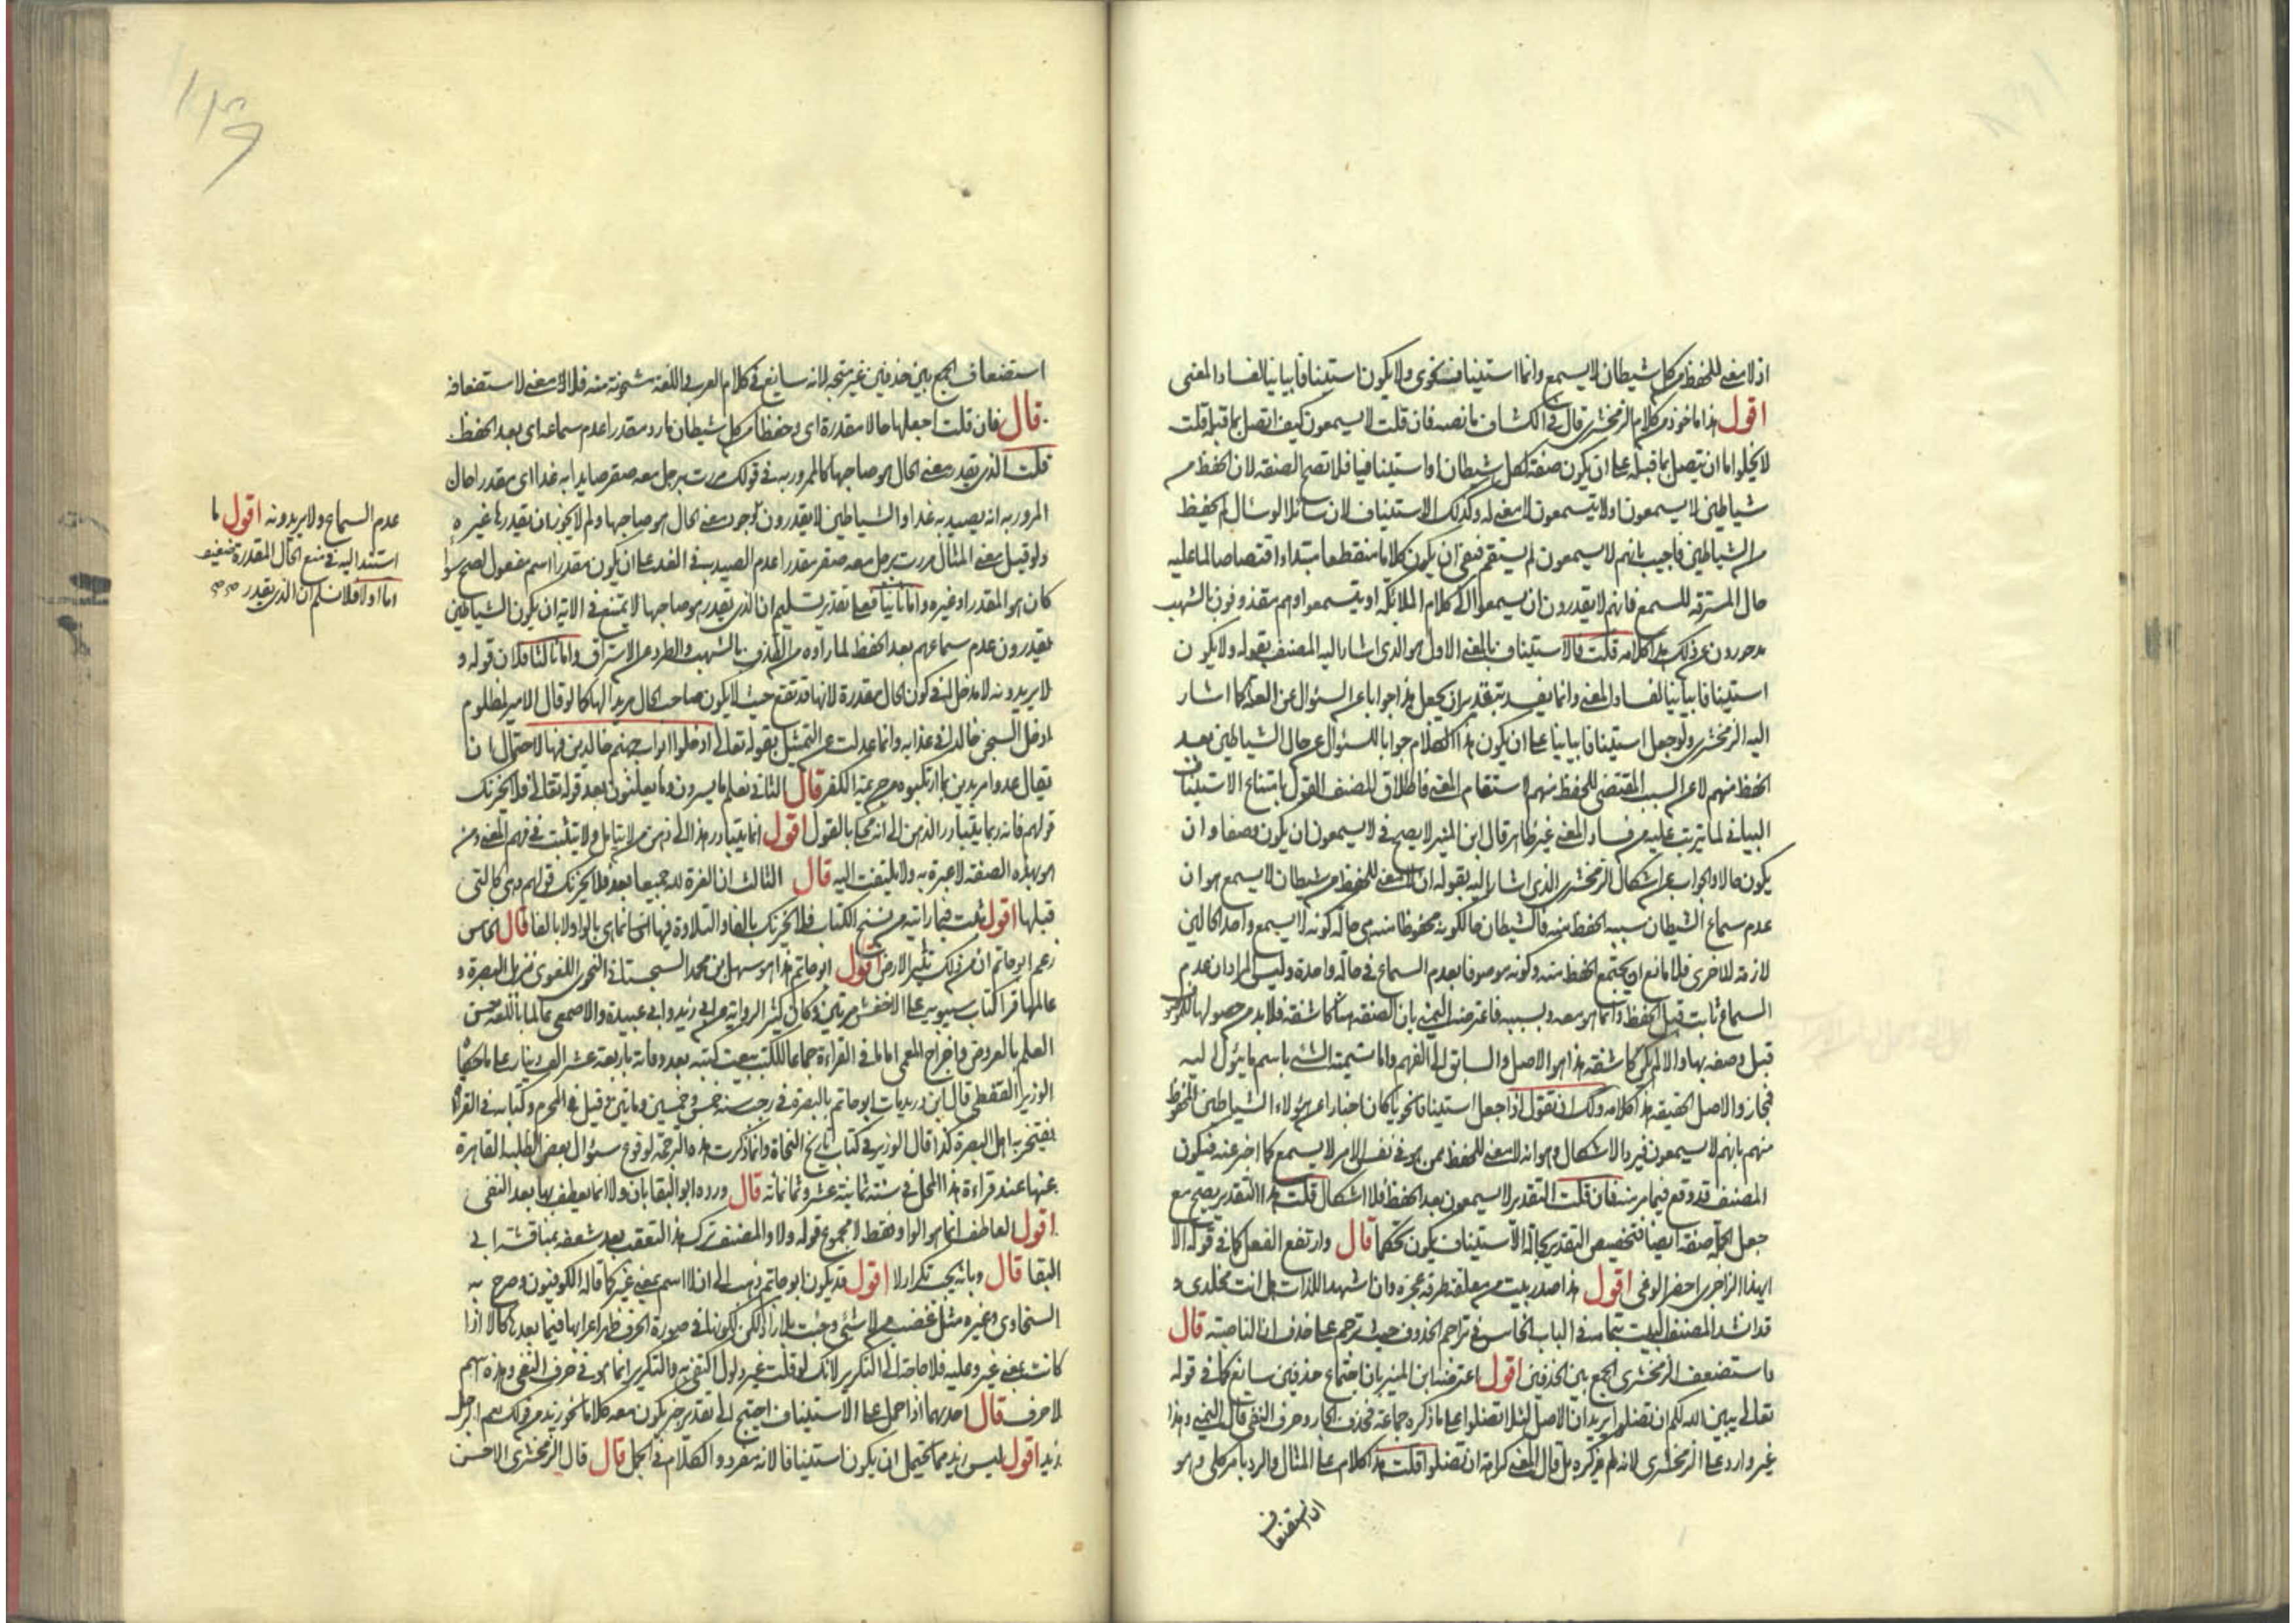 اذ لا معنى للحفظ من كل شيطان لا يسمع وانما استيناف نحوى ولا يكون استينافا بيانيا لفساد المعنى
اقول هذا ماخوذ من كلام الزمخشرى قال فى الكشاف ما نصه فان قلت لا يسمعون كيف اتصل بما قبله قلت
لا يخلوا اما ان يتصل بما قبله على ان يكون صفة لكل شيطان او استينافا فلا تصح الصفة لان الحفظ من
شياطين لا يسمعون ولا يتسمعون لا معنى له وكذلك الاستيناف لان سائلا لو سئال لم يحفظ
من الشياطين فاجيب بانهم لا يسمعون لم يستقم فبقى ان يكون كلاما منقطعا مبتداء اقتصاصا لما عليه
حال المسترقة للسمع فانهم لا يقدرون ان يسمعوا الى كلام الملائكة او يتسمعوا وهم مقذوفون بالشهب
مدحورون عن ذلك هذا كلامه قلت فالاستيناف بالمعنى الاول هو الذى اشار اليه المصنف بقوله ولا يكون
استينافا بيانيا لفساد المعنى وانما يفسد بتقدير ان يجعل هذا جوابا عن السئوال عن العلة كما اشار
اليه الزمخشرى ولو جعل استينافا بيانيا على ان يكون هذا الكلام جوابا للسئوال عن حال الشياطين بعد
الحفظ منهم لا عن السبب المقتضى للحفظ منهم لاستقام المعنى فاطلاق المصنف القول بامتناع الاستيناف
البيانى لما يترتب عليه من فساد المعنى غير ظاهر قال ابن المنير لا يصح فى لا يسمعون ان يكون وصفا وان
يكون حالا والجواب عن اشكال الزمخشرى الذى اشار اليه بقوله ان لا معنى للحفظ من شيطان لا يسمع هو ان
عدم سماع الشيطان سببه الحفظ منه فالشيطان حال كونه محفوظا منه هى حالة كونه لا يسمع واحد الحالين
لازمة للاخرى فلا مانع ان يجتمع الحفظ منه وكونه موصوفا بعدم السماع فى حالة واحدة وليس المراد ان عدم
السماع ثابت قبل الحفظ وانما هو معه وبسببه فاعترضه اليمنى بان الصفة هنا كاشفة فلا بد من حصولها للموصوف
قبل وصفه بها والا لم يكن كاشفة هذا هو الاصل والسابق الى الفهم واما تسمية الشئ باسم ما يئول اليه
فمجاز والاصل الحقيقة هذا كلامه ولك ان تقول اذا جعل استينافا نحويا كان اخبارا عن هؤلاء الشياطين المحفوظ
منهم بانهم لا يسمعون فيرد الاشكال وهو انه لا معنى للحفظ ممن هو فى نفس الامر لا يسمع كما اخبر عنه فيكون
المصنف قد وقع فيما فر منه فان قلت التقدير لا يسمعون بعد الحفظ فلا اشكال قلت هذا التقدير يصح مع
جعل الجملة صفة ايضا فتخصيص التقدير بحالة الاستيناف يكون تحكما قال وارتفع الفعل كما فى قوله الا
ايهذا الزاجرى احضر الوغى اقول هذا صدر بيت من معلقة طرفة عجزه وان اشهد اللذات هل انت مخلدى و
قد انشد المصنف البيت بتمامه فى الباب الخامس فى تراجم الحذوف حيث ترجم على حذف ان الناصبة قال
واستضعف الزمخشرى الجمع بين الحذفين اقول اعترضه ابن المنير بان اجتماع حذفين سايغ كما فى قوله
تعالى يبين الله لكم ان تضلوا يريد ان الاصل لئلا تضلوا على ما ذكره جماعة فحذف الجار وحرف النفى قال اليمنى وهذا
غير وارد على الزمخشرى لانه لم يذكره بل قال المعنى كراهة ان تضلوا قلت هذا كلام على المثال والرد بامر كلى وهو
ان استضعاف
استضعاف الجمع بين حذفين غير متجه لانه سايغ فى كلام العرب اللغة مشحونة منه فلا معنى لاستضعافه
قال فان قلت اجعلها حالا مقدرة اى وحفظا من كل شيطان مارد مقدرا عدم سماعه اى بعد الحفظ
قلت الذى يقدر معنى الحال هو صاحبها كالمرور به فى قولك مررت برجل معه صقر صايدا به غدا اى مقدرا حال
المرور به انه يصيد به غدا والشياطين لا يقدرون اقول معنى الحال هو صاحبها ولم لا يجوز ان يقدرها غيره
ولو قيل معنى المثال مررت برجل معه صقر مقدرا عدم الصيد به فى الغد على ان يكون مقدرا اسم مفعول لصح سواء
كان هو المقدر او غيره واما ثانيا فعلى تقدير تسليم ان الذى يقدر هو صاحبها لا يمتنع فى الاية ان يكون الشياطين
يقدرون عدم سماعهم بعد الحفظ لما راوه من القذف بالشهب والطرد عن الاستراق واما ثالثا فلان قوله و
لا يريدونه لا مدخل له فى كون الحال مقدرة لانها قد تقع حيث لا يكون صاحب الحال مريدا لها كما لو قال الامير لمظلوم
ادخل السجن خالدا فى عذابه وانما عدلت عن التمثيل بقوله تعالى ادخلوا ابواب جهنم خالدين فيها لاحتمال ان
يقال عدوا مريدين بما ارتكبوه من جريمة الكفر قال الثانى نعلم ما يسرون وما يعلنون بعد قوله تعالى فلا يحزنك
قولهم فانه ربما يتبادر الذهن الى انه محكى بالقول اقول انما يتبادر هذا الى ذهن من لا يتامل ولا يتثبت فى فهم المعنى ومن
هو بهذه الصفة لا عبرة به ولا يلتفت اليه قال الثالث ان العزة لله جميعا بعد فلا يحزنك قولهم وهى كالتى
قبلها اقول ثبت فيما رايته من نسخ الكتاب فلا يحزنك بالفا والتلاوة فيها انما هى بالواو لا بالفا قال الخامس
زعم ابو حاتم ان من ذلك تثير الارض اقول ابو حاتم هذا هو سهل بن محمد السجستانى النحوى اللغوى نزيل البصرة و
عالمها قرا كتاب سيبويه على الاخفش مرتين وكان كثير الرواية عن ابى زيد وابى عبيدة والاصمعى عالما باللغة حسن
العلم بالعروض واخراج المعمى اماما فى القراءة جماعا للكتب بيعت كتبه بعد وفاته باربعة عشر الف دينار على ما حكاه
الوزير القفطى قال ابن دريد مات ابو حاتم بالبصرة فى رجب سنة خمس وخمسين ومايتين وقيل فى المحرم وكتابه فى القراات
يفتخر به اهل البصرة كذا قال الوزير فى كتاب تاريخ النحاة وانما ذكرت هذه الترجمة لوقوع سئوال بعض الطلبة القاهرة
عنها عند قراءة هذا المحل فى سنة ثمانية عشر وثمانمائة قال ورده ابو البقا بان ولا انما يعطف بها بعد النفى
اقول العاطف انما هو الواو فقط لا مجموع قوله ولا والمصنف ترك هذا التعقب بعد شعفه بمناقشة ابى
البقا قال وبانه يجب تكرار لا اقول قد يكون ابو حاتم ذهب الى ان لا اسم بمعنى غير كما قاله الكوفيون وصرح به
السخاوى وغيره مثل غضب من لا شئ وجئت بلا زاد لكن لكونها فى صورة الحرف ظهر اعرابها فيما بعدها كالا اذا
كانت بمعنى غير وعليه فلا حاجة الى التكرير لانك لو قلت غير ذلول اكتفى به والتكرير انما هو فى حرف النفى وهذه اسم
لا حرف قال احدهما اذا حمل على الاستيناف احتيج الى تقدير جزء يكون معه كلاما نحو زيد من قولك نعم الرجل
زيد اقول ليس زيد مما يحتمل ان يكون استينافا لانه مفرد والكلام فى الجمل قال قال الزمخشرى الاحسن
عدم السماع ولا يريدونه اقول ما
استند اليه فى منع الحال المقدرة ضعيف
اما اولا فلا نسلم ان الذى يقدر صح صح